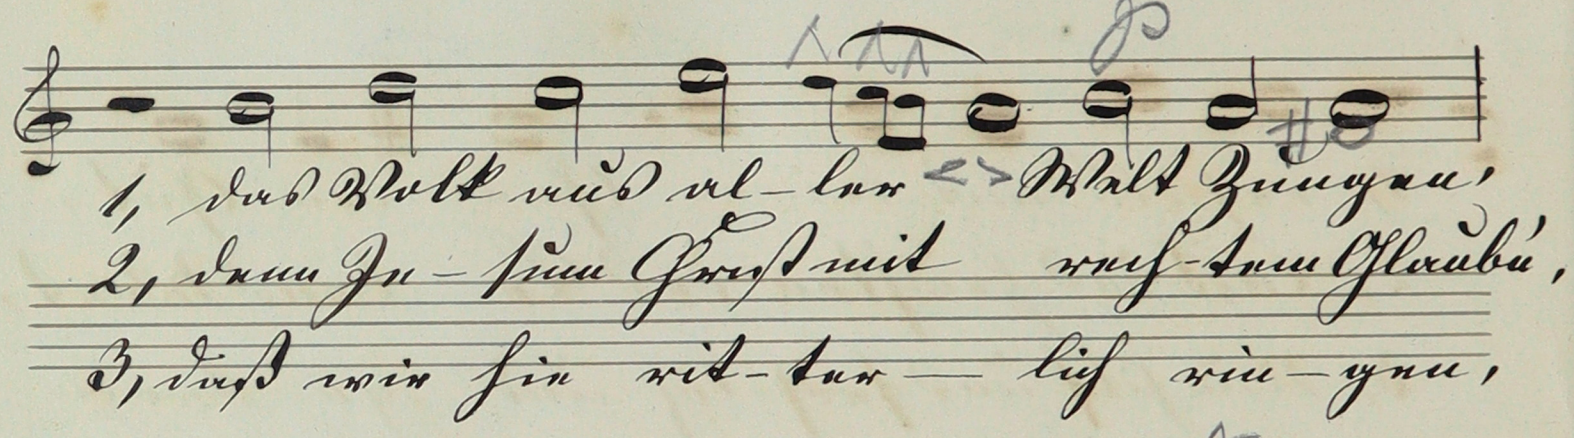 1, das Volk aus al-ler Welt Zungen,
2, denn Je-sum Christ mit rech-tem Glaubn,
3, daß wir hie rit-ter— lich rin-gen,